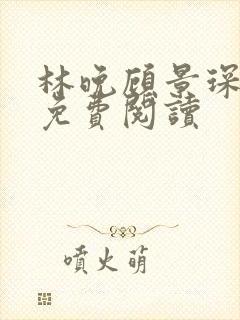 林晚顾景琛
免費閱讀
噴火萌